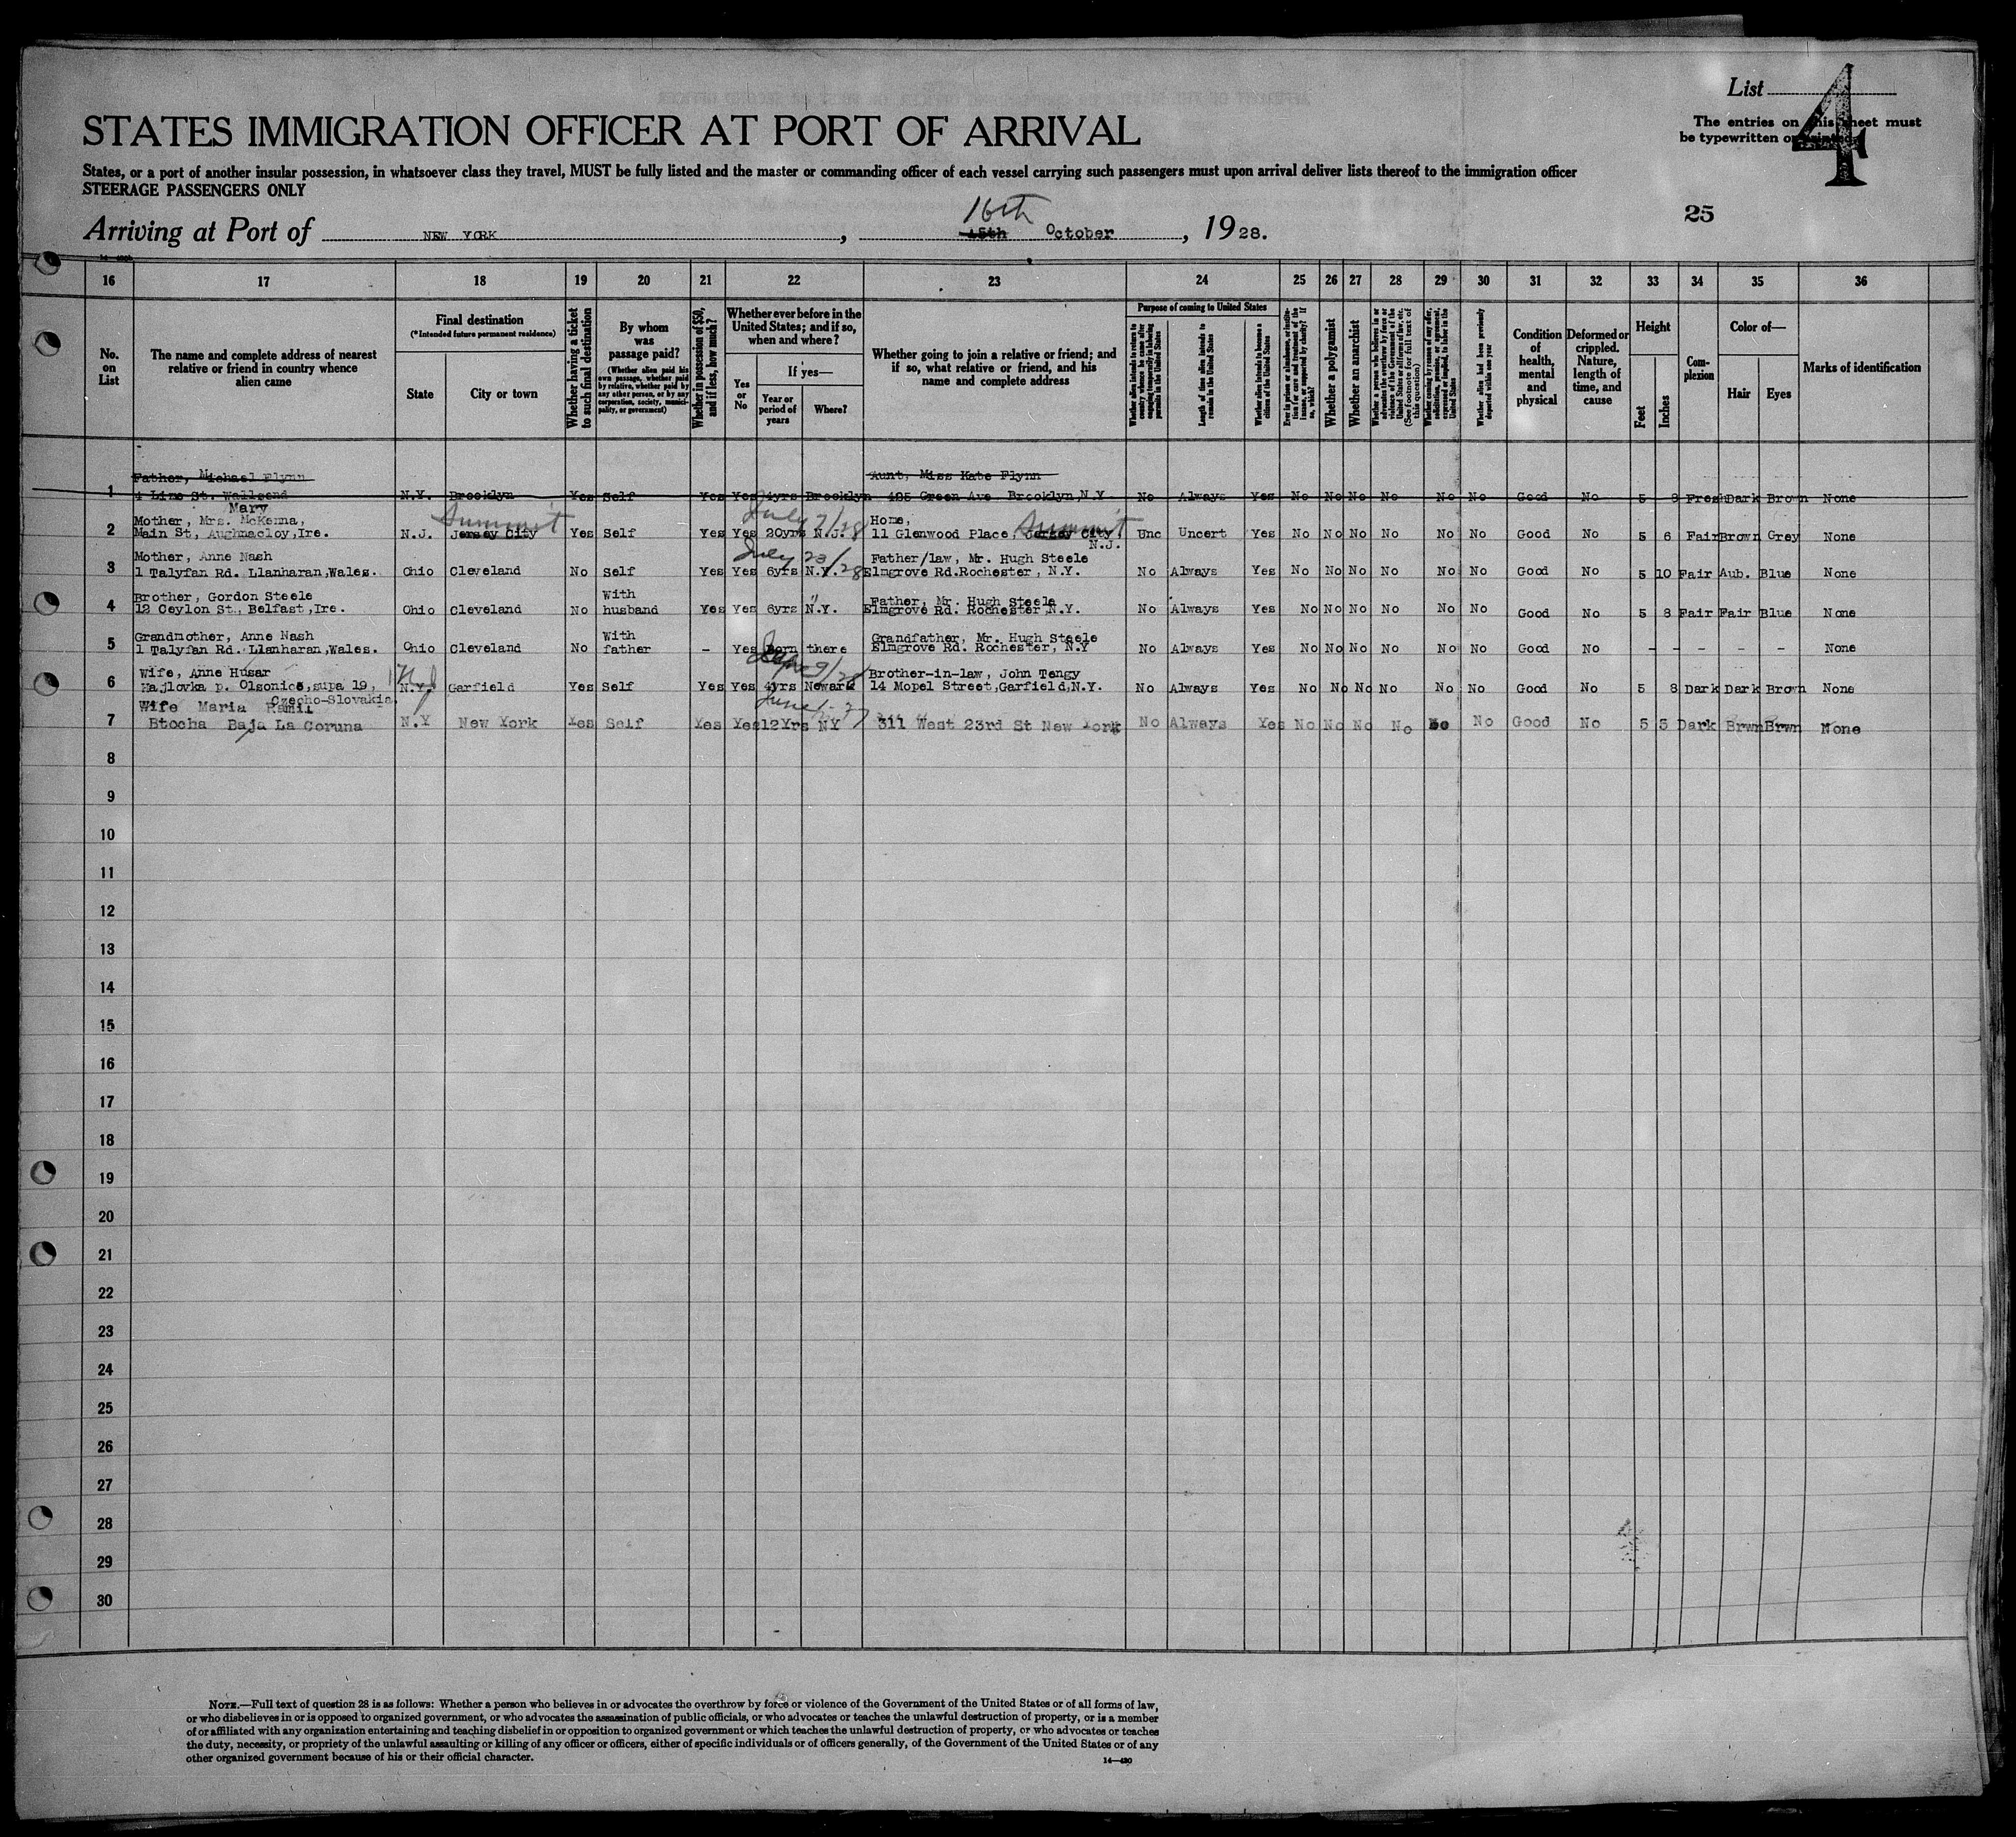 List
4
The entries on this sheet must
be typewritten or printed
STATES IMMIGRATION OFFICER AT PORT OF ARRIVAL
States, or a port of another insular possession, in whatsoever class they travel, MUST be fully listed and the master or commanding officer of each vessel carrying such passengers must upon arrival deliver lists thereof to the immigration officer
STEERAGE PASSENGERS ONLY
25
16th
Arriving at Port of NEW YORK , 15th October , 1928.
16 17 18 19 20 21 22 23 24 25 26 27 28 29 30 31 32 33 34 35 36
No. on List
The name and complete address of nearest relative or friend in country whence alien came
Final destination
(*Intended future permanent residence)
State
City or town
Whether having a ticket to such final destination
By whom was passage paid?
(Whether alien paid his own passage, whether paid by relative, whether paid by any other person, or by any corporation, society, municipality, or government)
Whether in possession of $50, and if less, how much?
Whether ever before in the United States; and if so, when and where?
Yes or No
If yes—
Year or period of years
Where?
Whether going to join a relative or friend; and if so, what relative or friend, and his name and complete address
Purpose of coming to United States
Whether alien intends to return to country whence he came after engaging temporarily in laboring pursuits in the United States
Length of time alien intends to remain in the United States
Whether alien intends to become a citizen of the United States
Ever in prison or almshouse, or institution for care and treatment of the insane, or supported by charity? If so, which?
Whether a polygamist
Whether an anarchist
Whether a person who believes in or advocates the overthrow by force or violence of the Government of the United States or all forms of law, etc. (See footnote for full text of this question)
Whether coming by reason of any offer, solicitation, promise, or agreement, expressed or implied, to labor in the United States
Whether alien had been previously deported within one year
Condition of health, mental and physical
Deformed or crippled. Nature, length of time, and cause
Height
Feet
Inches
Complexion
Color of—
Hair
Eyes
Marks of identification
Father, Michael Flynn Aunt, Miss Kate Flynn
1 4 Lime St. Wallsend N.Y. Brooklyn Yes Self Yes Yes 4yrs Brooklyn 495 Green Ave. Brooklyn, N.Y No Always Yes No No No No No No Good No 5 8 Fresh Dark Brown None
Mary
Mother, Mrs. McKenna, Summit July 7/28 Home, Summit
2 Main St, Aughnacloy, Ire. N.J. Jersey City Yes Self Yes Yes 20yrs N.J. 11 Glenwood Place, Jersey City, N.J. Unc Uncert Yes No No No No No No Good No 5 6 Fair Brown Grey None
Mother, Anne Nash July 23/28 Father/law, Mr. Hugh Steele
3 1 Talyfan Rd. Llanharan, Wales. Ohio Cleveland No Self Yes Yes 6yrs N.Y. Elmgrove Rd. Rochester, N.Y. No Always Yes No No No No No No Good No 5 10 Fair Aub. Blue None
Brother, Gordon Steele With " Father, Mr. Hugh Steele
4 12 Ceylon St., Belfast, Ire. Ohio Cleveland No husband Yes Yes 6yrs N.Y. Elmgrove Rd. Rochester, N.Y. No Always Yes No No No No No No Good No 5 8 Fair Fair Blue None
Grandmother, Anne Nash With Grandfather, Mr. Hugh Steele
5 1 Talyfan Rd. Llanharan, Wales. Ohio Cleveland No father - Yes Born there Elmgrove Rd. Rochester, N.Y No Always Yes No No No No No No Good No - - - - - None
Wife, Anne Husar NJ 9/28 Brother-in-law, John Tengy
6 Majlovka p. Olsonice, supa 19, N.Y. Garfield Yes Self Yes Yes 4yrs Newark 14 Mopel Street, Garfield, N.Y. No Always Yes No No No No No No Good No 5 8 Dark Dark Brown None
Czecho-Slovakia.
Wife Maria Ramil June 1-27
7 Btocha Baja La Coruna N.Y New York Yes Self Yes Yes 12Yrs NY 311 West 23rd St New York No Always Yes No No No No No No Good No 5 5 Dark Brwn Brwn None
8
9
10
11
12
13
14
15
16
17
18
19
20
21
22
23
24
25
26
27
28
29
30
NOTE.—Full text of question 28 is as follows: Whether a person who believes in or advocates the overthrow by force or violence of the Government of the United States or of all forms of law,
or who disbelieves in or is opposed to organized government, or who advocates the assassination of public officials, or who advocates or teaches the unlawful destruction of property, or is a member
of or affiliated with any organization entertaining and teaching disbelief in or opposition to organized government or which teaches the unlawful destruction of property, or who advocates or teaches
the duty, necessity, or propriety of the unlawful assaulting or killing of any officer or officers, either of specific individuals or of officers generally, of the Government of the United States or of any
other organized government because of his or their official character.
14—430